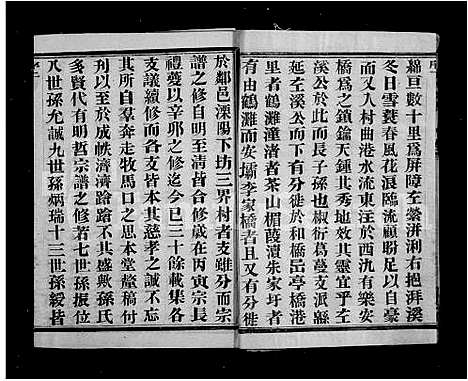 序
綿亘數十里爲屏障左縈洴浰右抱湃溪
冬日雪蓑春風花浪臨流顧盼足以自豪
而又入村曲港水流東注於西氿有樂安
橋爲之鎖鑰天鍾其秀地效其靈宜乎左
溪公於此長子孫也椒衍葛蔓支派緜
延左溪公而下一傳有分徙岳亭橋港
里者鶴灘潼渚者茶山楣葭瀆朱家圩者
有由鶴灘而安壩李家橋者且又有分徙
於鄰邑溧陽下坊三界村者支雖分而宗
譜之修自明至清皆合修歲在丙寅宗長
禮夔以辛耶之修迄今已三十餘載集各
支議續修而各皆本其慈孝之誠不忘
所自羣奔走牧馬口之思本堂釐稿付
刋以至於成帙濟濟蹌蹌不亦盛歟孫氏
多賢代有明哲宗譜之修若七世孫振位
八世孫允誠九世孫炳瑞十三世孫綬皆